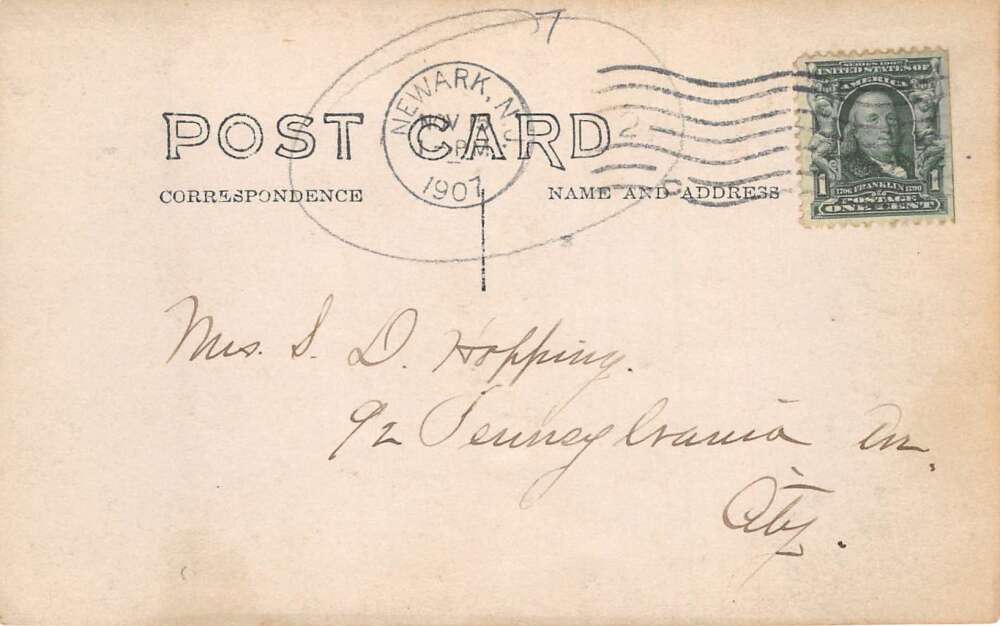 7
NEWARK, N.J.
NOV
PM
1907
2
SERIES 1902
UNITED STATES OF
AMERICA
1706 FRANKLIN 1790
1 1
POSTAGE
ONE CENT
POST CARD
CORRESPONDENCE
NAME AND ADDRESS
Mrs. S. D. Hopping.
92 Pennsylvania Av.
City.